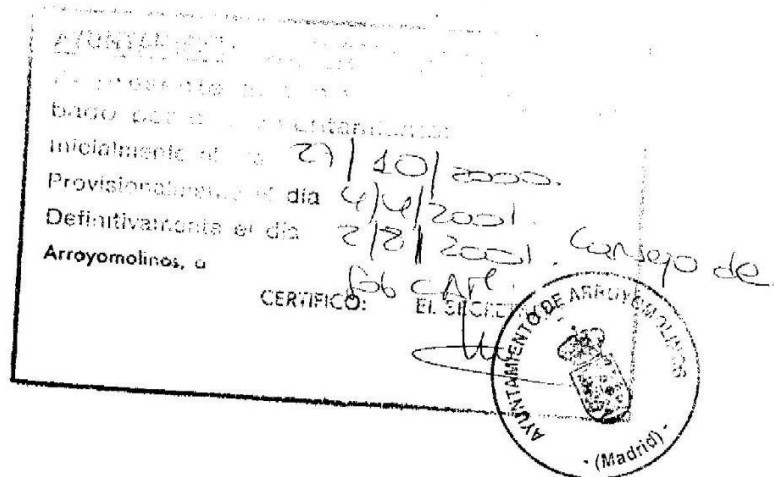 AYUNTAMIENTO
bado por el Ayuntamiento:
Inicialmente el día 27/10/2000.
Provisionalmente el día 4/4/2001.
Definitivamente el día 2/8/2001. Consejo de
Gob CAM.
Arroyomolinos, a
CERTIFICO: EL SECRET
AYUNTAMIENTO DE ARROYOMOLINOS
- (Madrid) -